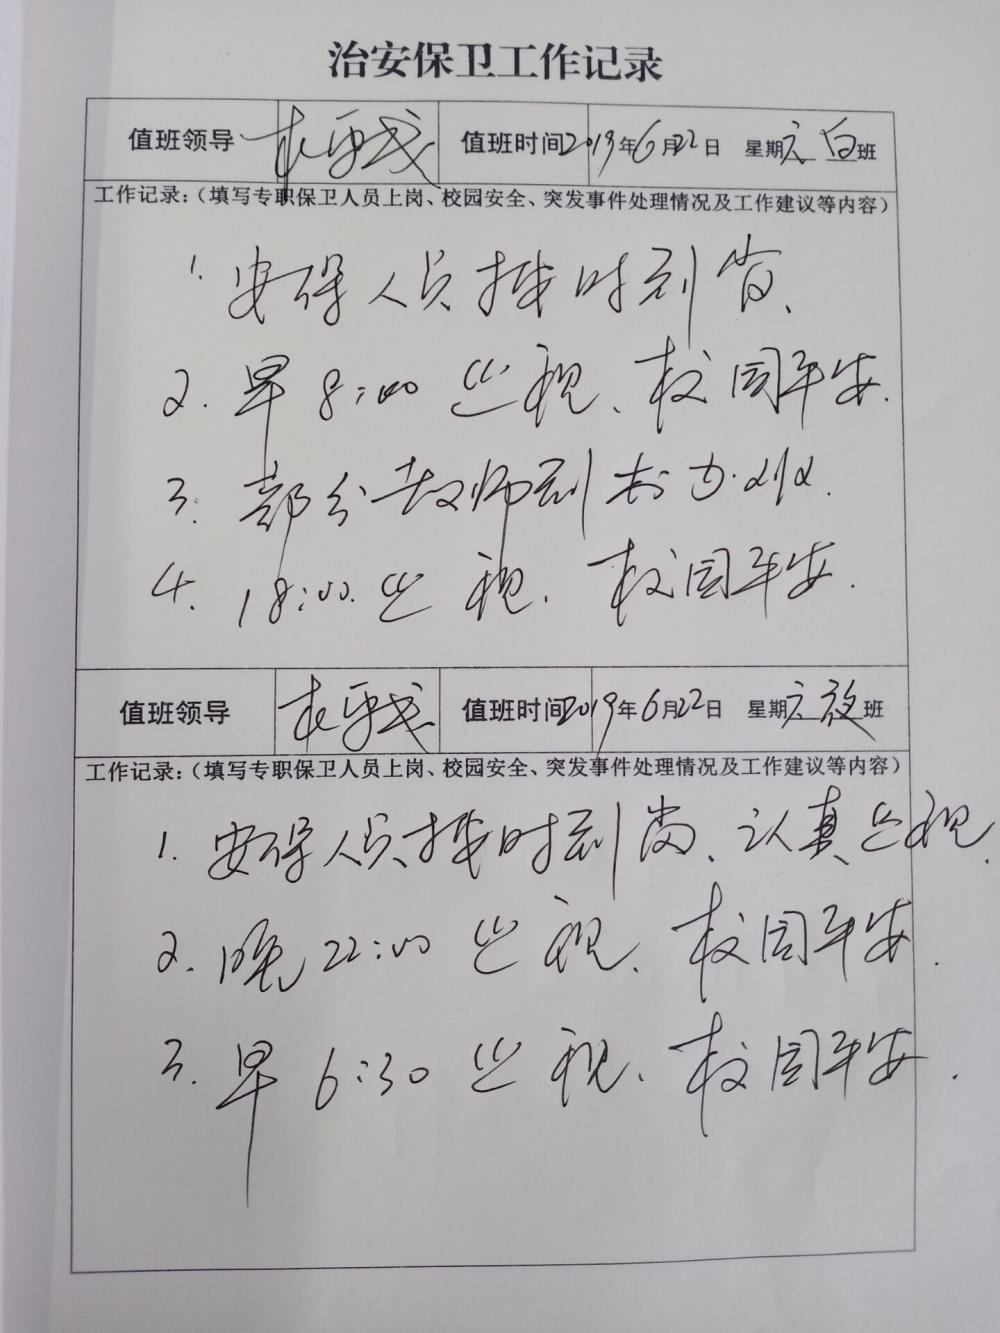 治安保卫工作记录
值班领导 值班时间2019年6月22日 星期六白班
工作记录:(填写专职保卫人员上岗、校园安全、突发事件处理情况及工作建议等内容)
1. 安保人员按时到岗、
2. 早8:00巡视、校园平安.
3. 部分教师到校办公.
4. 18:00巡视、校园平安.
值班领导 值班时间2019年6月22日 星期六夜班
工作记录:(填写专职保卫人员上岗、校园安全、突发事件处理情况及工作建议等内容)
1. 安保人员按时到岗、认真巡视
2. 晚22:00巡视、校园平安.
3. 早6:30巡视、校园平安.